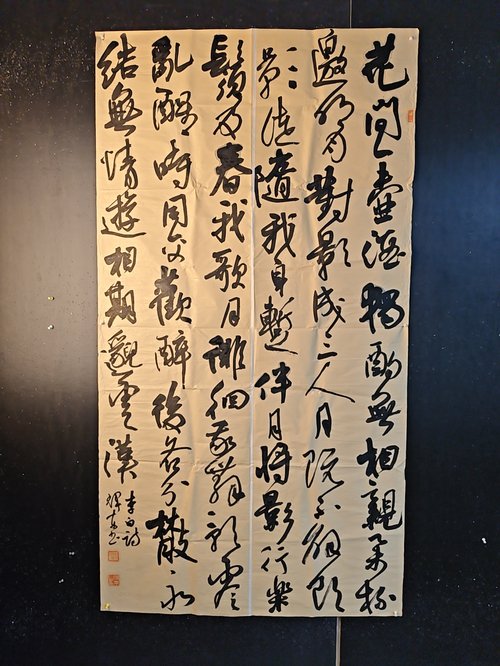 花間一壺酒獨酌無相親舉杯
邀明月對影成三人月既不解飲
影徒隨我身暫伴月將影行樂
鬚及春我歌月徘徊我舞影零
亂醒時同交歡醉後各分散永
結無情遊相期邈雲漢
李白詩
書